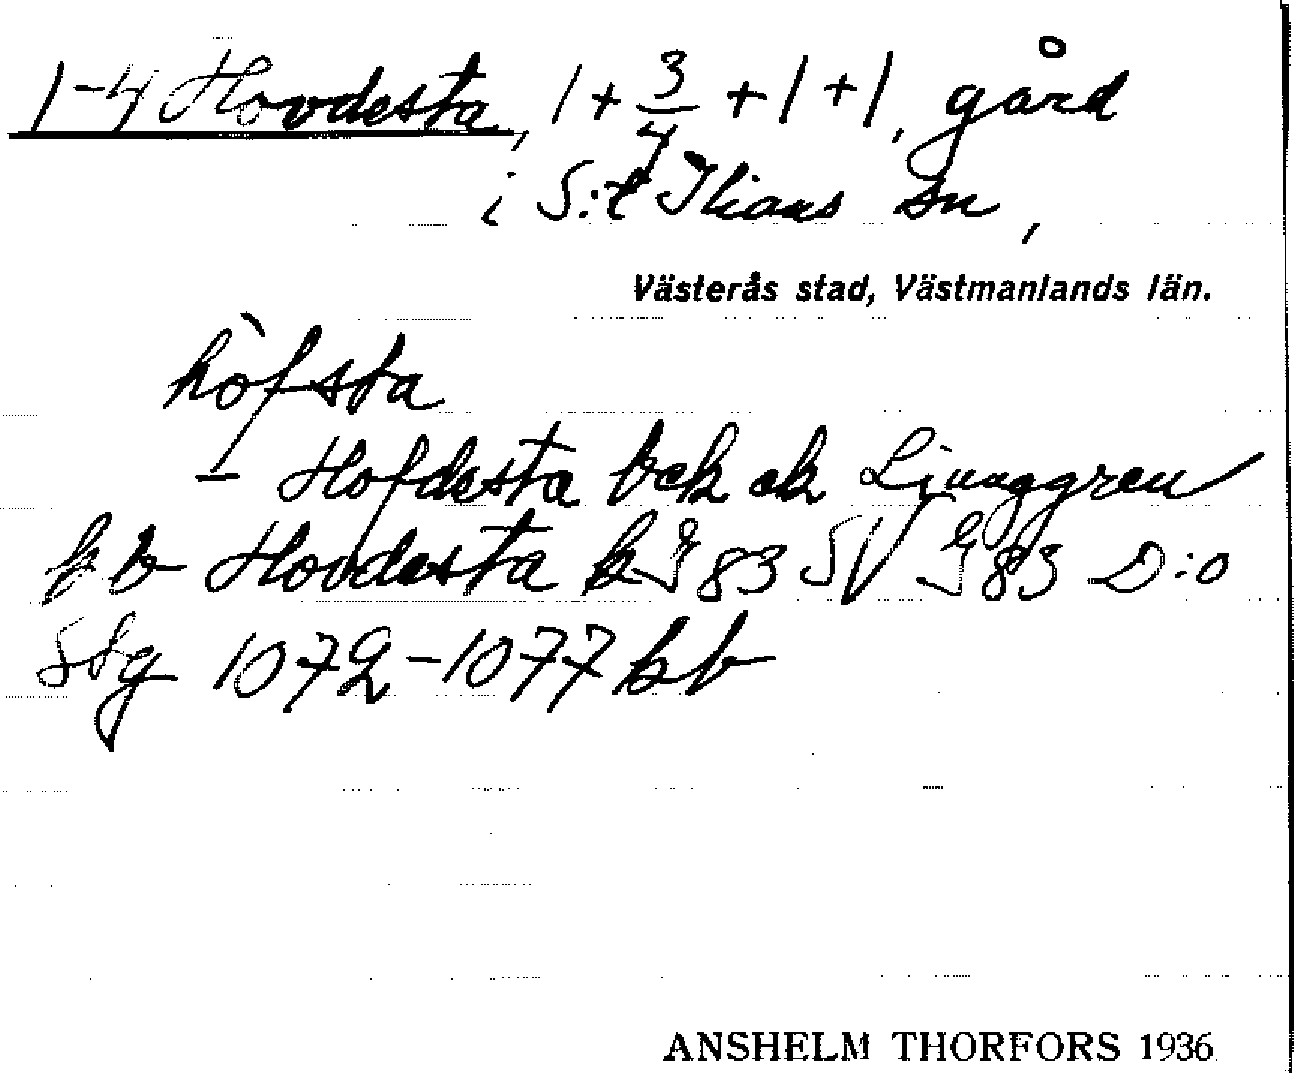 1-4 Hovdesta, 1+3/4+1+1, gård
i S:t Ilians sn,
Västerås stad, Västmanlands län.
hòfsta
– Hofdesta bek ek Ljunggren
Hovdesta 83 SV 83 D:o
1072-1077
ANSHELM THORFORS 1936